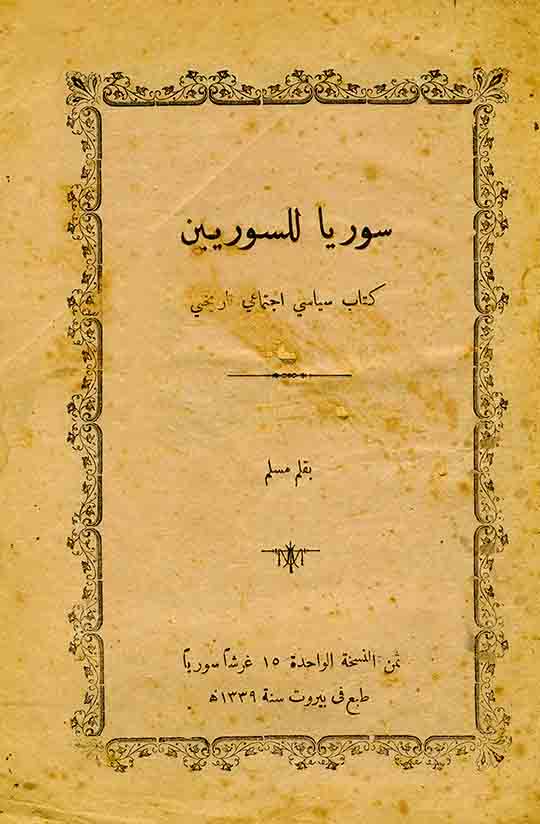 سوريا للسوريين
كتاب سياسي اجتماعي تاريخي
بقلم مسلم
ثمن النسخة الواحدة ١٥ غرشاً سورياً
طبع في بيروت سنة ١٣٣٩ھ